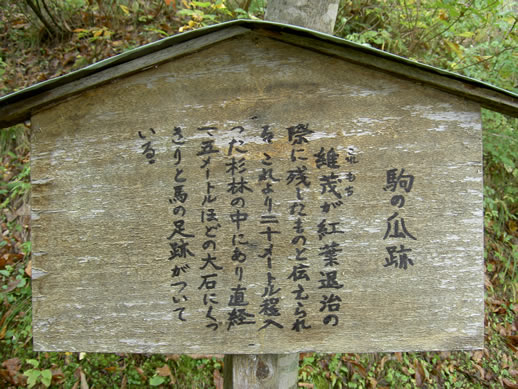 駒の瓜跡
これもち
維茂が紅葉退治の
際に残したものと伝えられ
る。これより二十メートル程入
った杉林の中にあり直経
一・五メートルほどの大石にくっ
きりと馬の足跡がついて
いる。